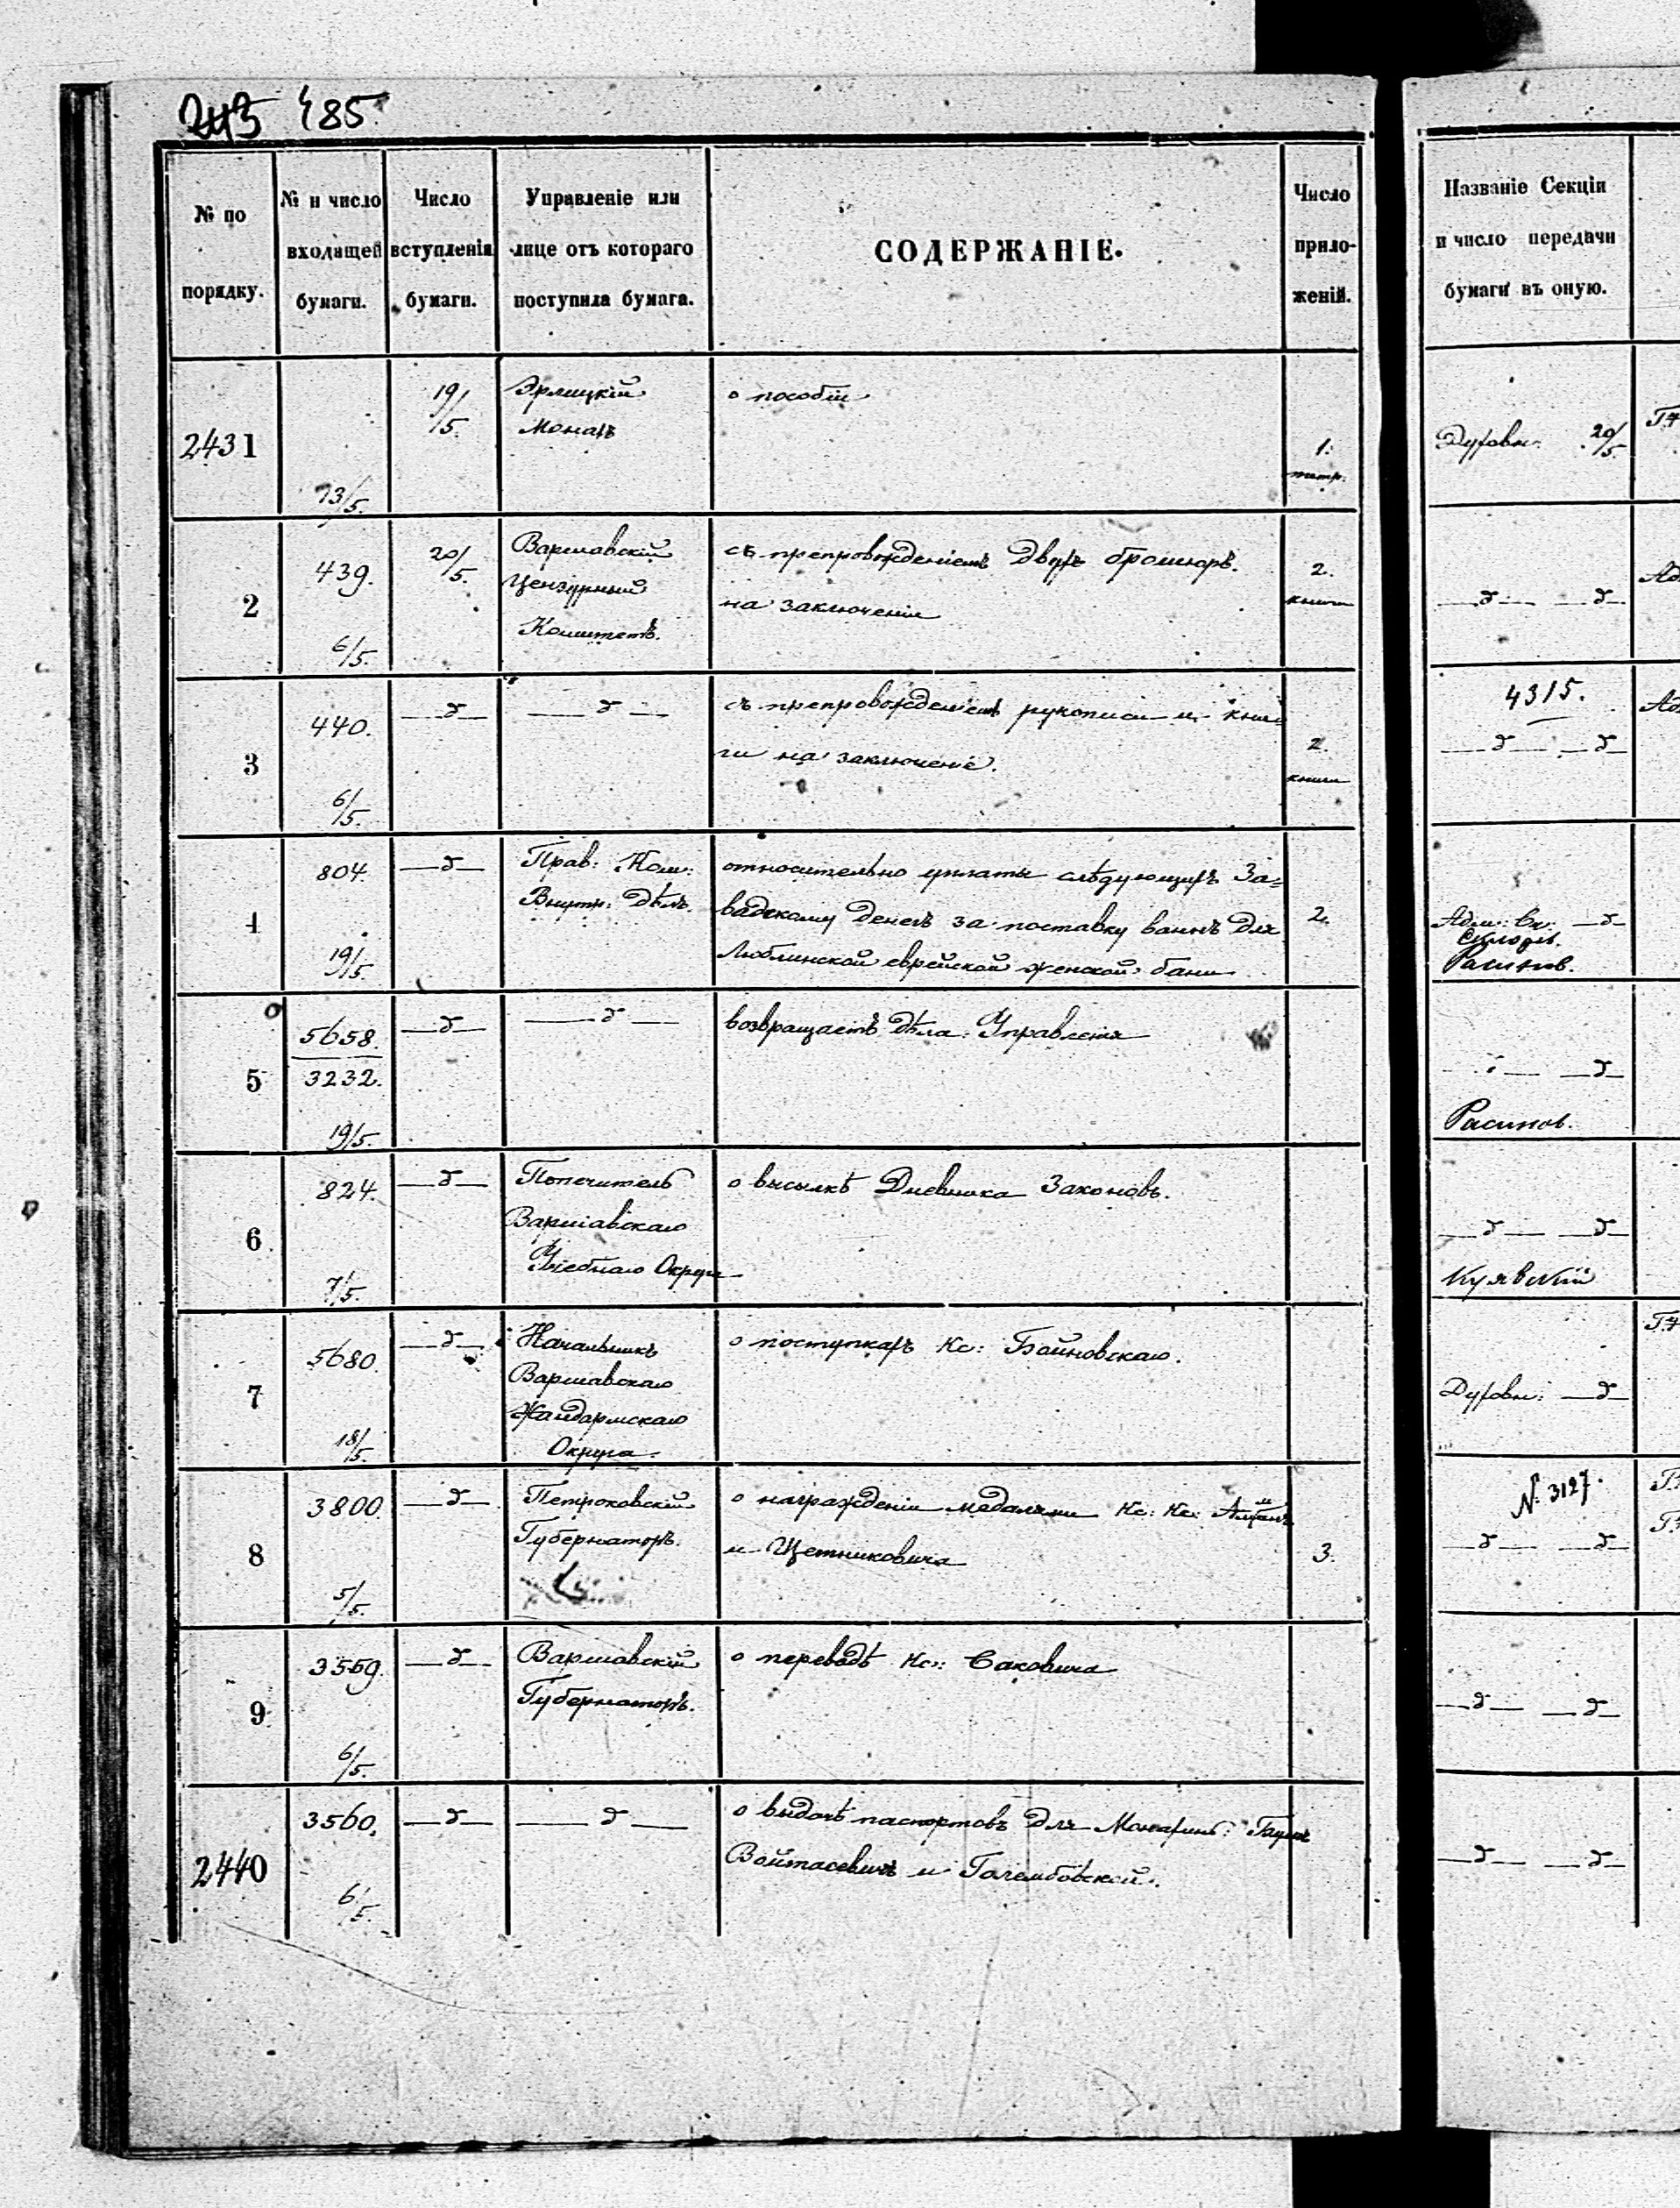 243 485.
№ по порядку.
№ и число входящей бумаги.
Число вступленія бумаги.
Управленіе или лице отъ котораго поступила бумага.
СОДЕРЖАНІЕ.
Число приложеній.
Названіе Секціи
и число передачи
бумаги въ оную.
2431
13/5.
19/5.
Эрлицкій
Монахъ
о пособіи
1.
Духовн: 20/5.
2
439.
6/5.
20/5.
Варшавскій
Цензурный
Комитетъ.
съ препровожденіемъ двухъ брошюръ.
на заключеніи
2.
книги
—д— —д—
3
440.
6/5.
—д—
—д—
съ препровожденіемъ рукописи и кни=
ги на заключеніе.
2.
книги
4315.
—д— —д—
4
804.
19/5
—д—
Прав: Ком:
Внутр: Дѣлъ.
относительно уплаты слѣдующихъ За=
вадскому денегъ за поставку ваннъ для
Люблинской еврейской женской бани
2.
Адм: Ск: —д—
Расинов.
5
5658.
3232.
19/5.
—д—
—д—
возвращаетъ дѣла: Управленія
—д—
Расинов.
6
824.
7/5.
—д—
Попечитель
Варшавскаго
Учебнаго Округа
о высылкѣ Дневника Законовъ.
—д— —д—
Куявскій
7
5680.
18/5.
—д—
Начальникъ
Варшавскаго
Жандармскаго
Округа
о поступкахъ Кс: Бойновскаго.
Духовн: —д—
8
3800.
5/5.
—д—
Петроковскій
Губернаторъ.
о награжденіи медалями Кс: Кс:
и Цетниковича
3.
№ 3127.
—д— —д—
9
3559.
6/5.
—д—
Варшавскій
Губернаторъ.
о переводѣ Кс: Саковича
—д— —д—
2440
3560.
6/5.
—д—
—д—
о выдачѣ паспортовъ для Монахинь:
Войтасевичъ и Голембовской.
—д— —д—